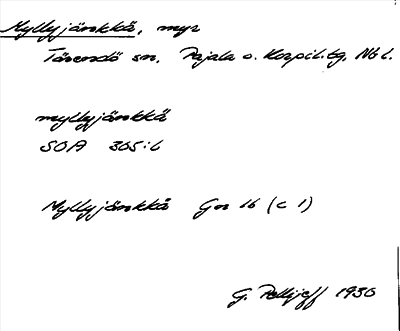 Myllyjänkkä, myr
Tärendö sn. Pajala o. Korpil. tg. Nbl.
myllyjänkkä
SOA 365:6
Myllyjänkkä Gn 16 (c 1)
G. Pellijeff 1930